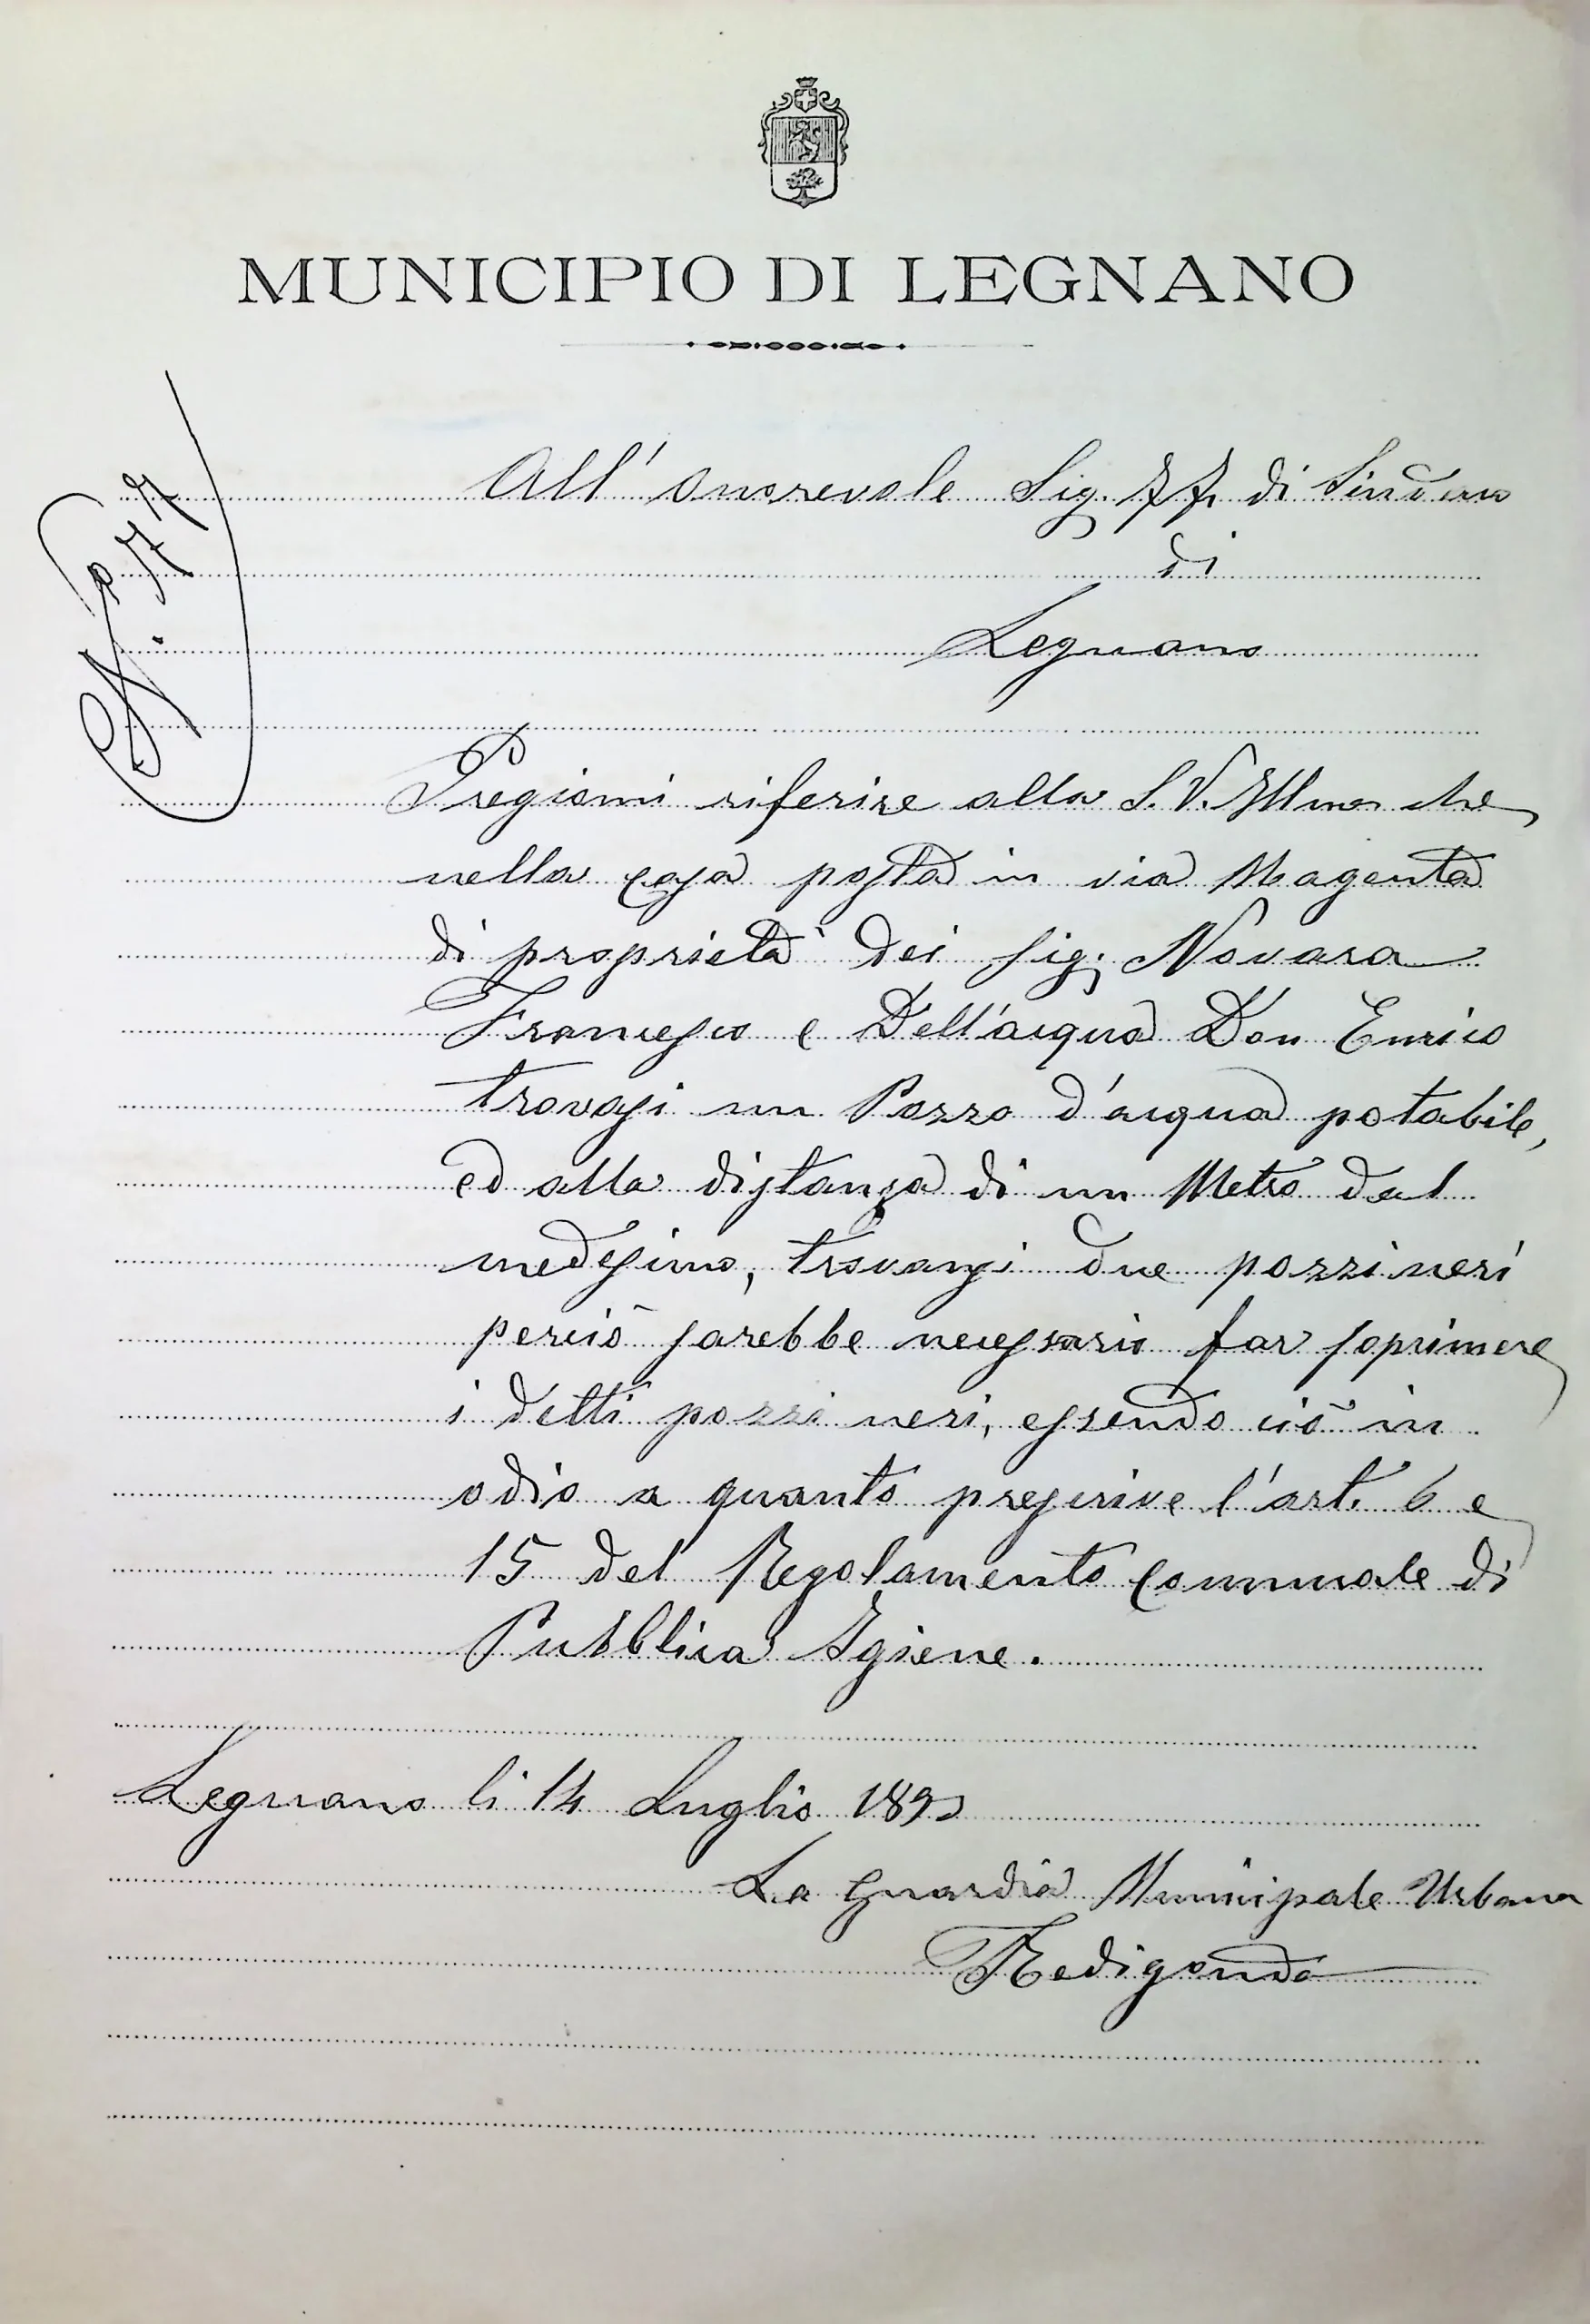 MUNICIPIO DI LEGNANO
All' Onorevole Sig. ff di Sindaco
di
Legnano
Pregiomi riferire alla S.V. Illma che
nella casa posta in via Magenta
di proprietà dei sig.i Novara
Francesco e Dell'acqua Don Enrico
trovasi un Pozzo d'acqua potabile,
ed alla distanza di un Metro dal
medesimo, trovansi due pozzi neri
perciò sarebbe necessario far soprimere
i detti pozzi neri, essendo ciò in
odio a quanto prescrive l'art. 6 e
15 del Regolamento Comunale di
Pubblica Igiene.
Legnano li 14 Luglio
La Guardia Municipale Urbana
Redigonda